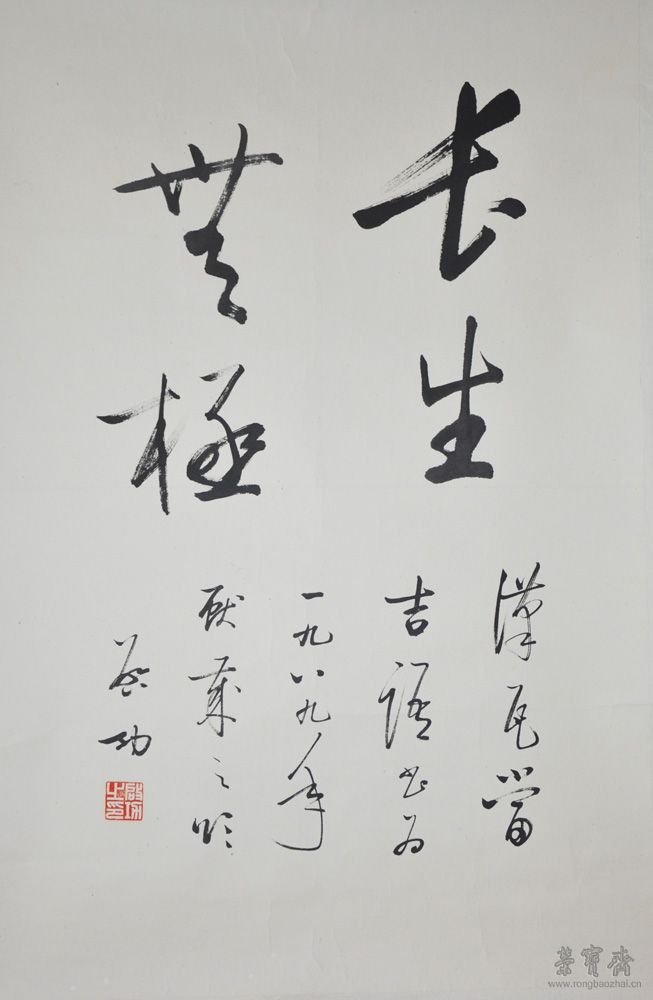 长生
無極
漢瓦當
吉語書為
一九八九年
獻歲之頌
啟功
啟功之印
榮寶齋
www.rongbaozhai.cn